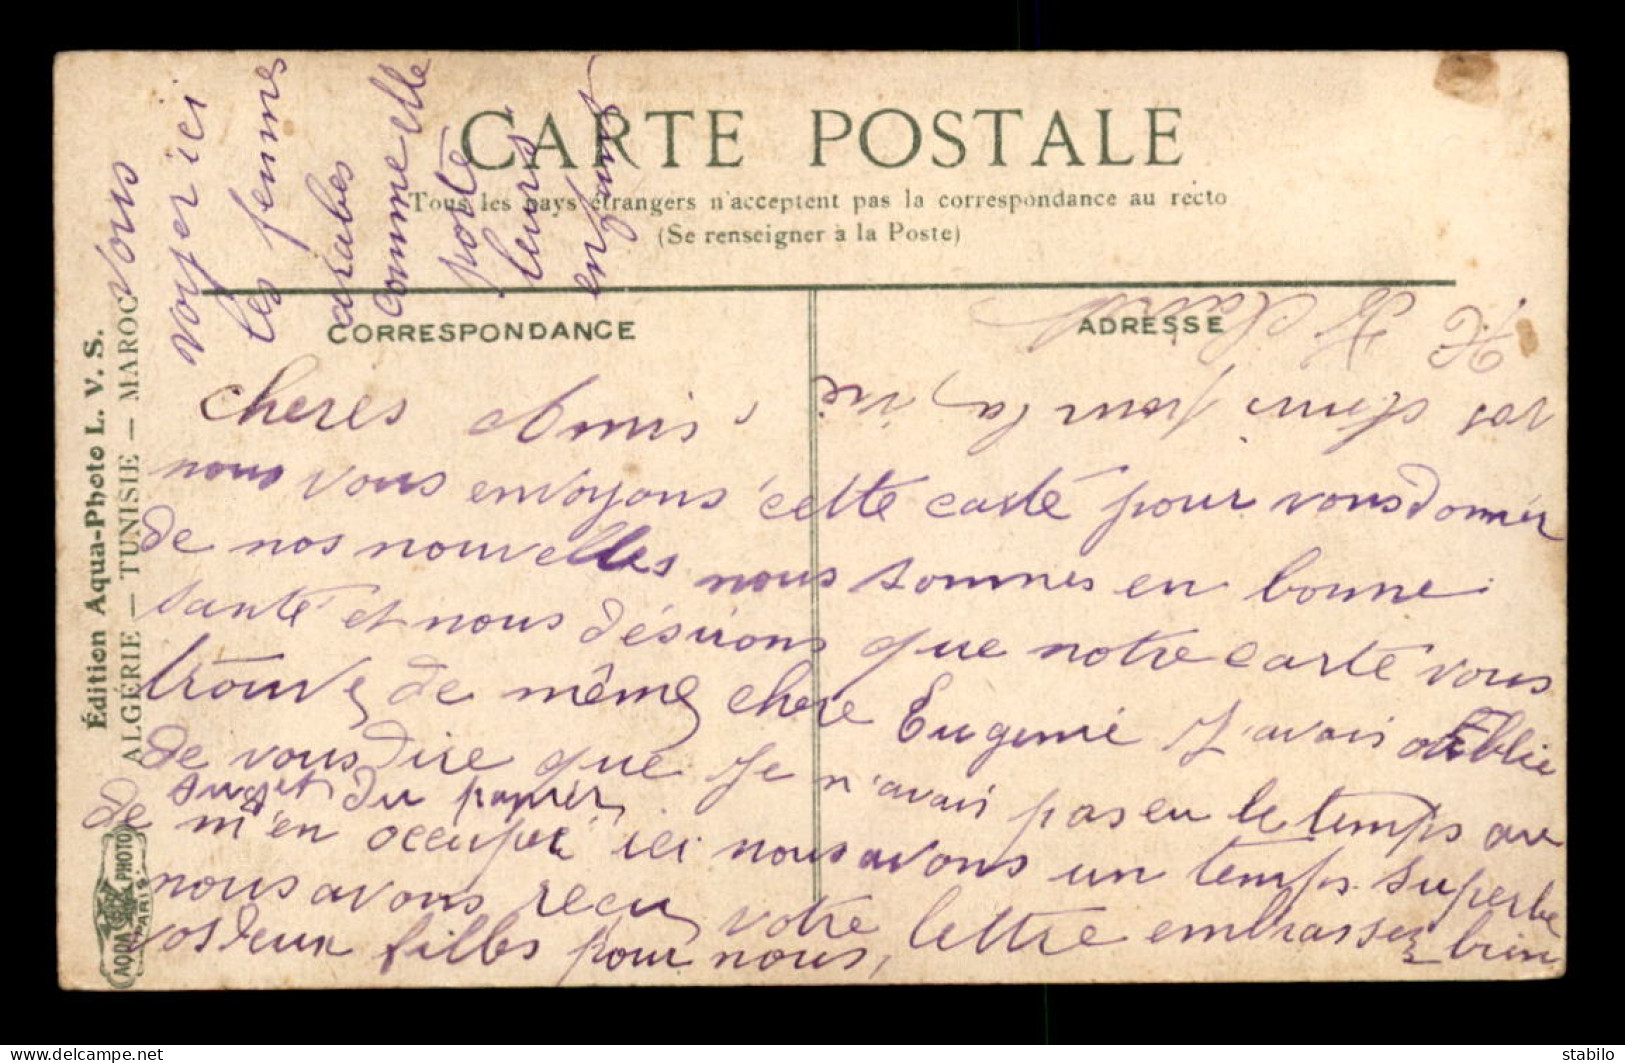 CARTE POSTALE
Tous les pays étrangers n'acceptent pas la correspondance au recto
(Se renseigner à la Poste)
CORRESPONDANCE
ADRESSE
Édition Aqua-Photo L. V. S.
ALGÉRIE — TUNISIE — MAROC
AQUA PHOTO
PARIS
Vous
voyer ici
les femmes
arabes
comme elle
porte
leurs
enfants
cheres Amis
nous vous envoyons cette carte pour vous donner
de nos nouvelles nous sommes en bonne
santé et nous désirons que notre carte vous
trouve de même chere Eugenie J'avais oublie
de vous dire que je n'avais pas eu le temps au
sujet du papier
de m'en occuper ici nous avons un temps superbe
nous avons recu votre lettre embrassez bien
vos deux filles pour nous,
vos Amis pour la vie
delcampe.net
stabilo